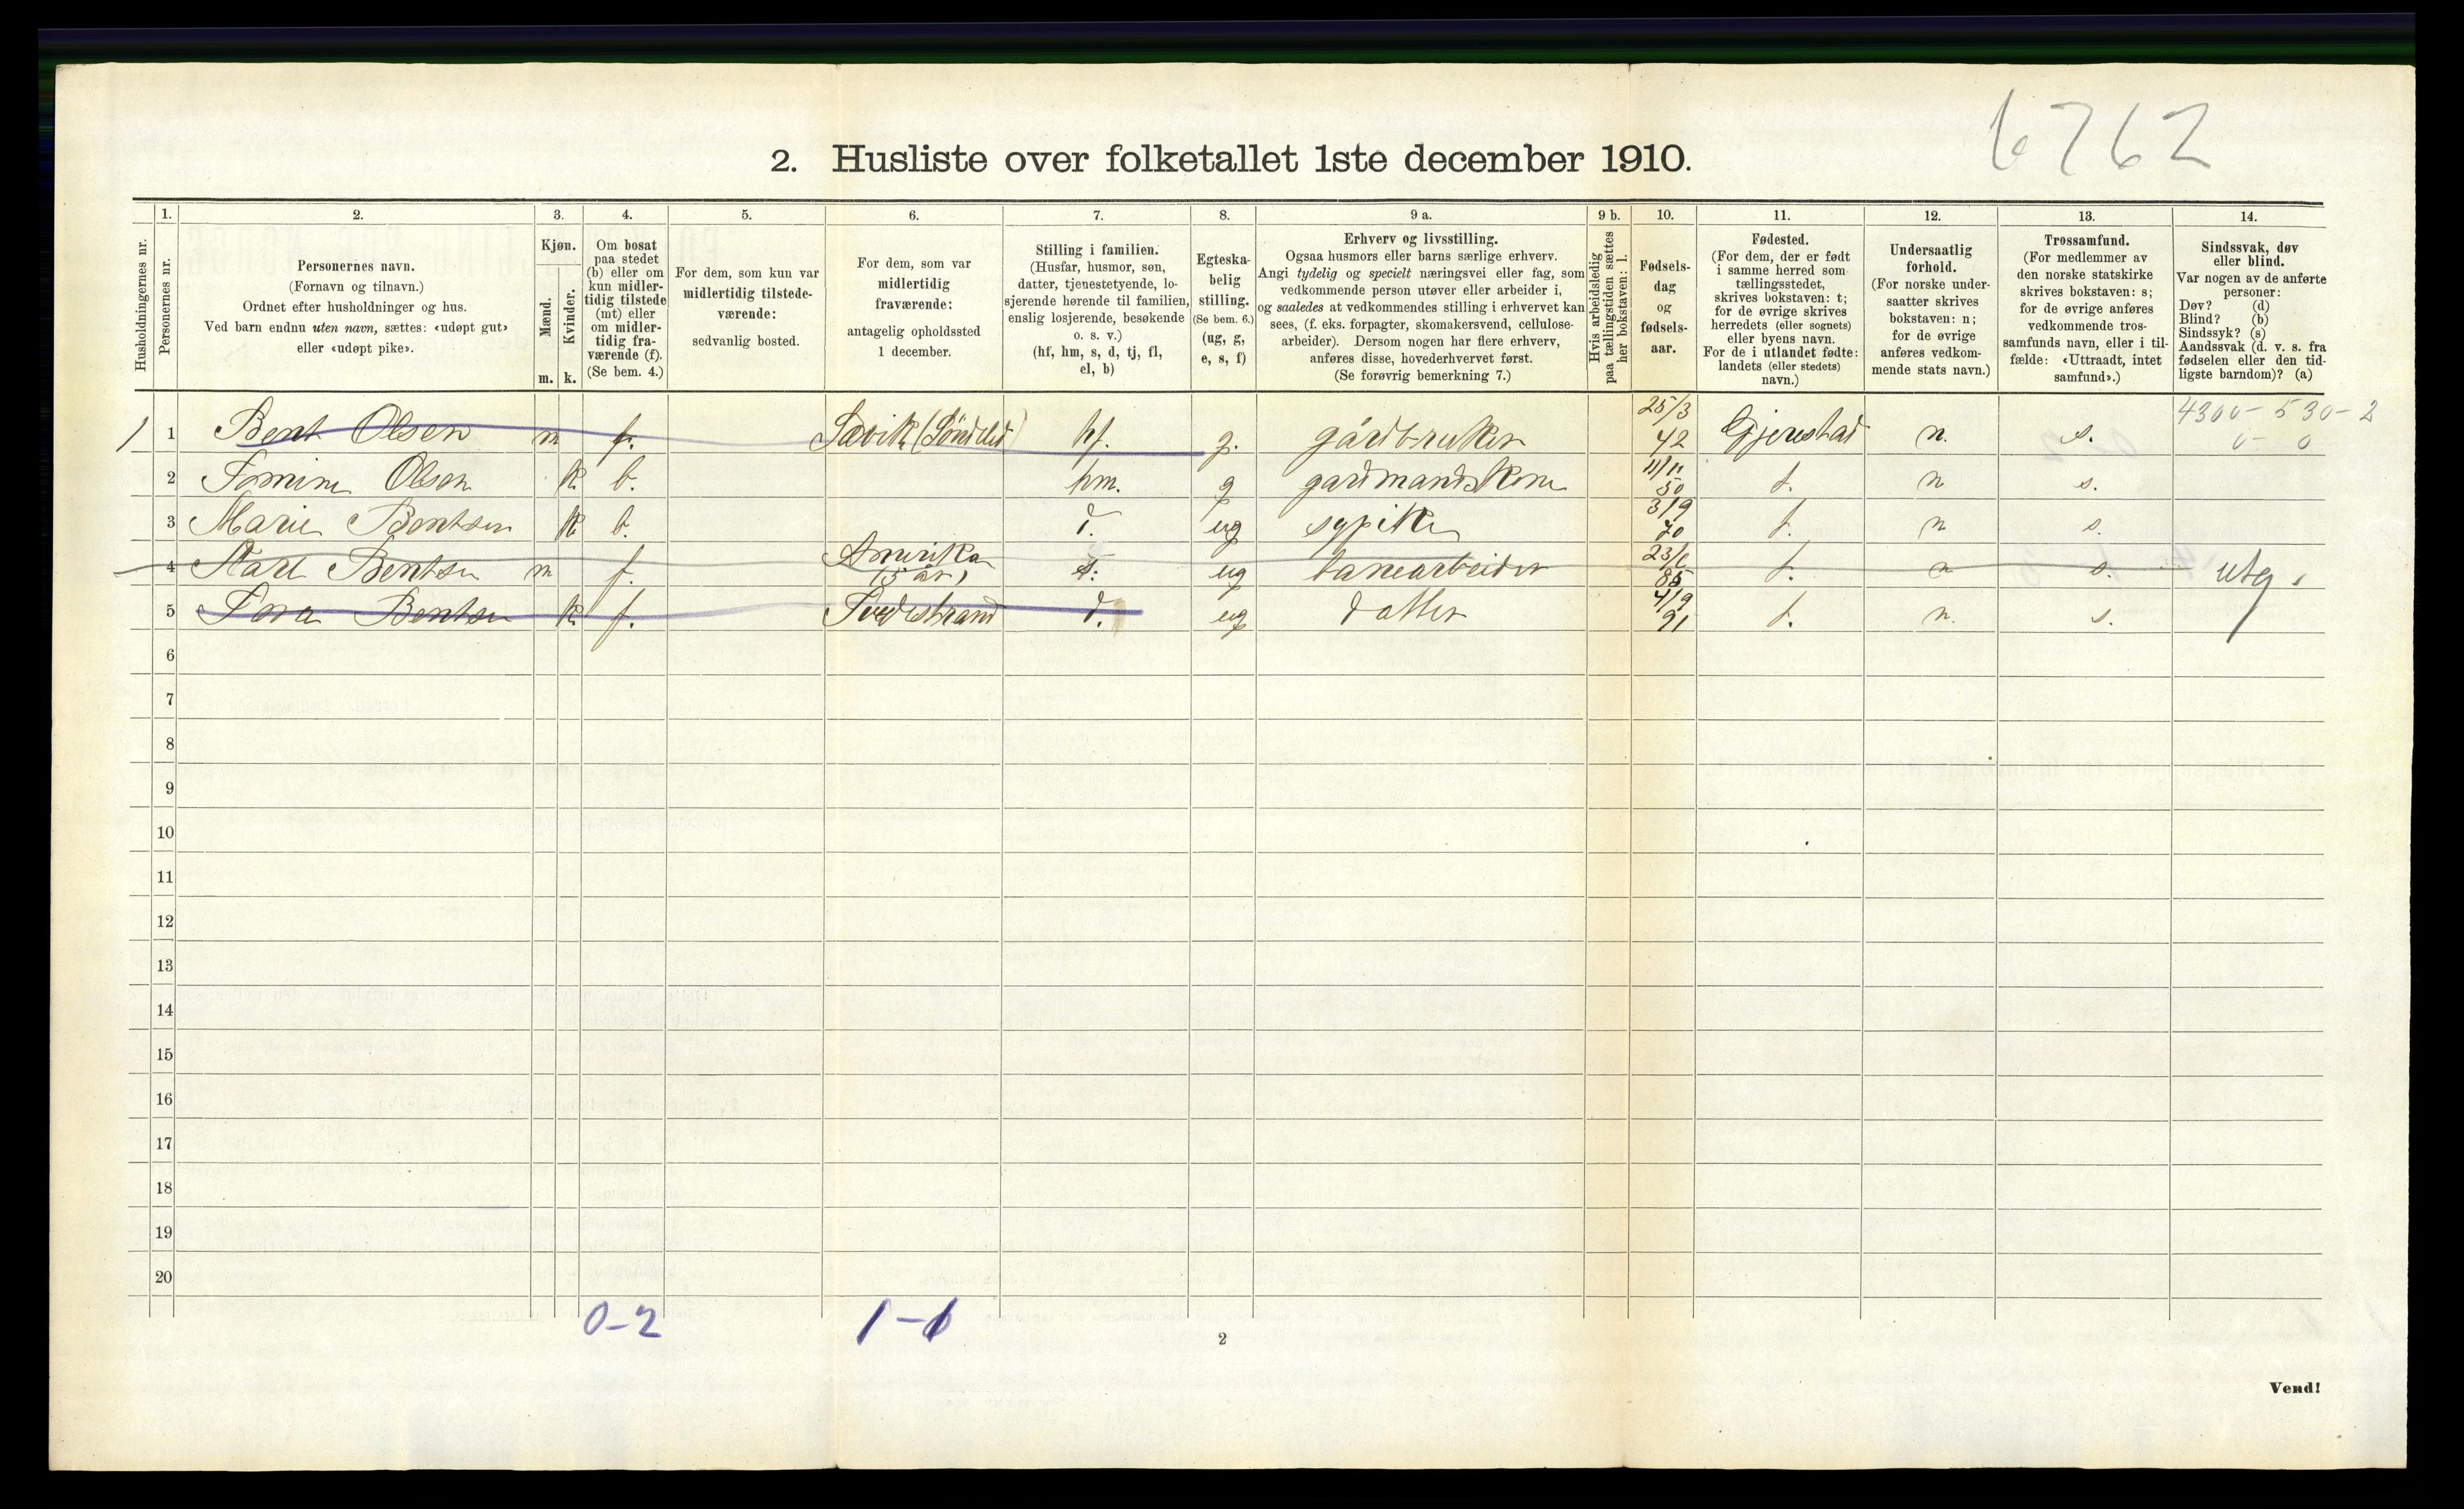 6762
2. Husliste over folketallet 1ste december 1910.
1. 2. 3. 4. 5. 6. 7. 8. 9 a. 9 b. 10. 11. 12. 13. 14.
Husholdningernes nr.
Personernes nr.
Personernes navn.
(Fornavn og tilnavn.)
Ordnet efter husholdninger og hus.
Ved barn endnu uten navn, sættes: «udøpt gut»
eller «udøpt pike».
Kjøn.
Mænd.
Kvinder.
m. k.
Om bosat
paa stedet
(b) eller om
kun midler-
tidig tilstede
(mt) eller
om midler-
tidig fra-
værende (f).
(Se bem. 4.)
For dem, som kun var
midlertidig tilstede-
værende:
sedvanlig bosted.
For dem, som var
midlertidig
fraværende:
antagelig opholdssted
1 december.
Stilling i familien.
(Husfar, husmor, søn,
datter, tjenestetyende, lo-
sjerende hørende til familien,
enslig losjerende, besøkende
o. s. v.)
(hf, hm, s, d, tj, fl,
el, b)
Egteska-
belig
stilling.
(Se bem. 6.)
(ug, g,
e, s, f)
Erhverv og livsstilling.
Ogsaa husmors eller barns særlige erhverv.
Angi tydelig og specielt næringsvei eller fag, som
vedkommende person utøver eller arbeider i,
og saaledes at vedkommendes stilling i erhvervet kan
sees, (f. eks. forpagter, skomakersvend, cellulose-
arbeider). Dersom nogen har flere erhverv,
anføres disse, hovederhvervet først.
(Se forøvrig bemerkning 7.)
Hvis arbeidsledig
paa tællingstiden sættes
her bokstaven: l.
Fødsels-
dag
og
fødsels-
aar.
Fødested.
(For dem, der er født
i samme herred som
tællingsstedet,
skrives bokstaven: t;
for de øvrige skrives
herredets (eller sognets)
eller byens navn.
For de i utlandet fødte:
landets (eller stedets)
navn.)
Undersaatlig
forhold.
(For norske under-
saatter skrives
bokstaven: n;
for de øvrige
anføres vedkom-
mende stats navn.)
Trossamfund.
(For medlemmer av
den norske statskirke
skrives bokstaven: s;
for de øvrige anføres
vedkommende tros-
samfunds navn, eller i til-
fælde: «Uttraadt, intet
samfund».)
Sindssvak, døv
eller blind.
Var nogen av de anførte
personer:
Døv? (d)
Blind? (b)
Sindssyk? (s)
Aandssvak (d. v. s. fra
fødselen eller den tid-
ligste barndom)? (a)
4300- 530-2
0- 0
1 1 Bent Olsen m f. Søvik (Søndeled) hf. g. gårdbruker 25/3 42 Gjerestad n. s.
2 Tomine Olsen k b. hm. g gardmandskone 11/11 50 t. n s.
3 Marie Bentsen k b. d. ug sypike 3/9 70 t. n s.
4 Karl Bentsen m f. Amerika (3 år) s. ug lanearbeider 85 t. n s. utg.
5 Tora Bentsen k f. Tvedestrand d. ug datter 4/9 91 t. n. s.
6
7
8
9
10
11
12
13
14
15
16
17
18
19
20
0-2 1-1
2
Vend!